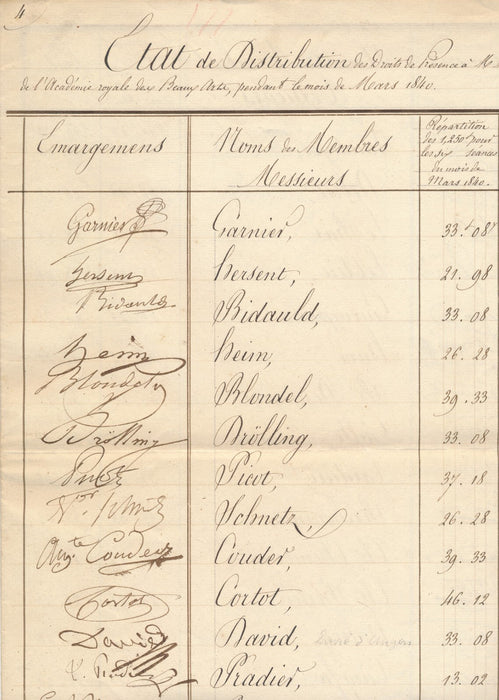 4
Etat de Distribution des Droits de Présence à M
de l'Académie royale des Beaux Arts, pendant le mois de Mars 1840.
Emargemens Noms des Membres Répartition
Messieurs des 1,250f pour
les six séances
du mois de
Mars 1840.
Garnier Garnier, 33.f 08c
hersent hersent, 21. 98
Bidauld Bidauld, 33. 08
heim heim, 26. 28
Blondel Blondel, 39. 33
Drölling Drölling, 33. 08
Picot Picot, 37. 18
Schnetz Schnetz, 26. 28
Aug.te Couder Couder, 39. 33
Cortot Cortot, 46. 12
David David, David d'Angers 33. 08
Pradier Pradier, 13. 02